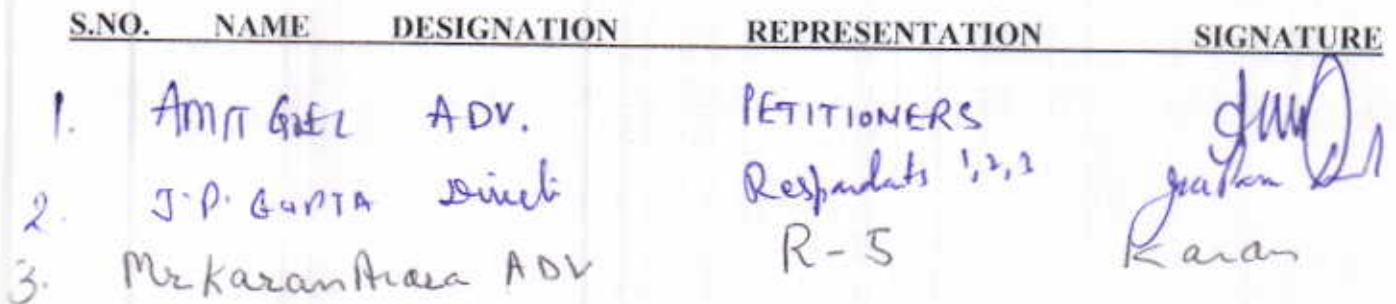 S.NO. NAME DESIGNATION REPRESENTATION SIGNATURE
1. AMIT GOEL ADV. PETITIONERS
2. J.P. GUPTA Respondents 1,2,3
3. Mr Karan Arora ADV R-5 Karan